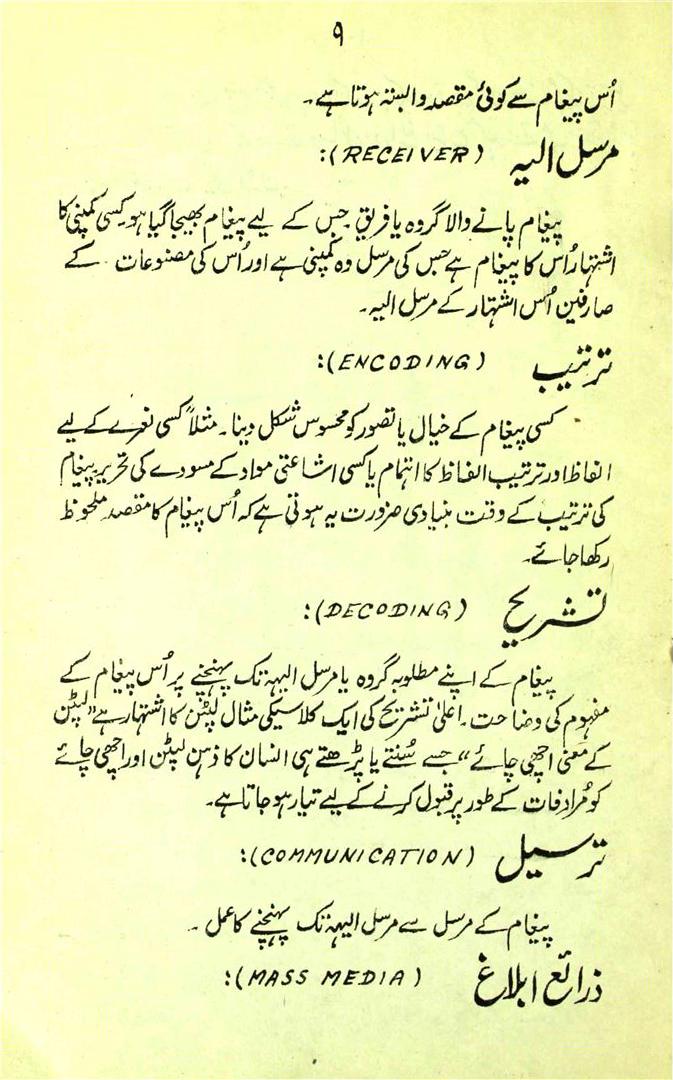 ۹
اُس پیغام سے کوئی مقصد وابستہ ہوتا ہے۔
مرسل الیہ (RECEIVER):
پیغام پانے والا گروہ یا فریق جس کے لیے پیغام بھیجا گیا ہو۔ کسی کمپنی کا
اشتہار اُس کا پیغام ہے جس کی مرسل وہ کمپنی ہے اور اُس کی مصنوعات کے
صارفین اُس اشتہار کے مرسل الیہ۔
ترتیب (ENCODING):
کسی پیغام کے خیال یا تصور کو محسوس شکل دینا۔ مثلاً کسی نعرے کے لیے
الفاظ اور ترتیب الفاظ کا اہتمام یا کسی اشاعتی مواد کے مسودے کی تحریر پیغام
کی ترتیب کے وقت بنیادی ضرورت یہ ہوتی ہے کہ اُس پیغام کا مقصد ملحوظ
رکھا جائے۔
تشریح (DECODING):
پیغام کے اپنے مطلوبہ گروہ یا مرسل الیہہ تک پہنچنے پر اُس پیغام کے
مفہوم کی وضاحت۔ اعلیٰ تشریح کی ایک کلاسیکی مثال لپٹن کا اشتہار ہے "لپٹن
کے معنی اچھی چائے" جسے سُنتے یا پڑھتے ہی انسان کا ذہن لپٹن اور اچھی چائے
کو مُرادفات کے طور پر قبول کرنے کے لیے تیار ہو جاتا ہے۔
ترسیل (COMMUNICATION):
پیغام کے مرسل سے مرسل الیہہ تک پہنچنے کا عمل۔
ذرائع ابلاغ (MASS MEDIA):